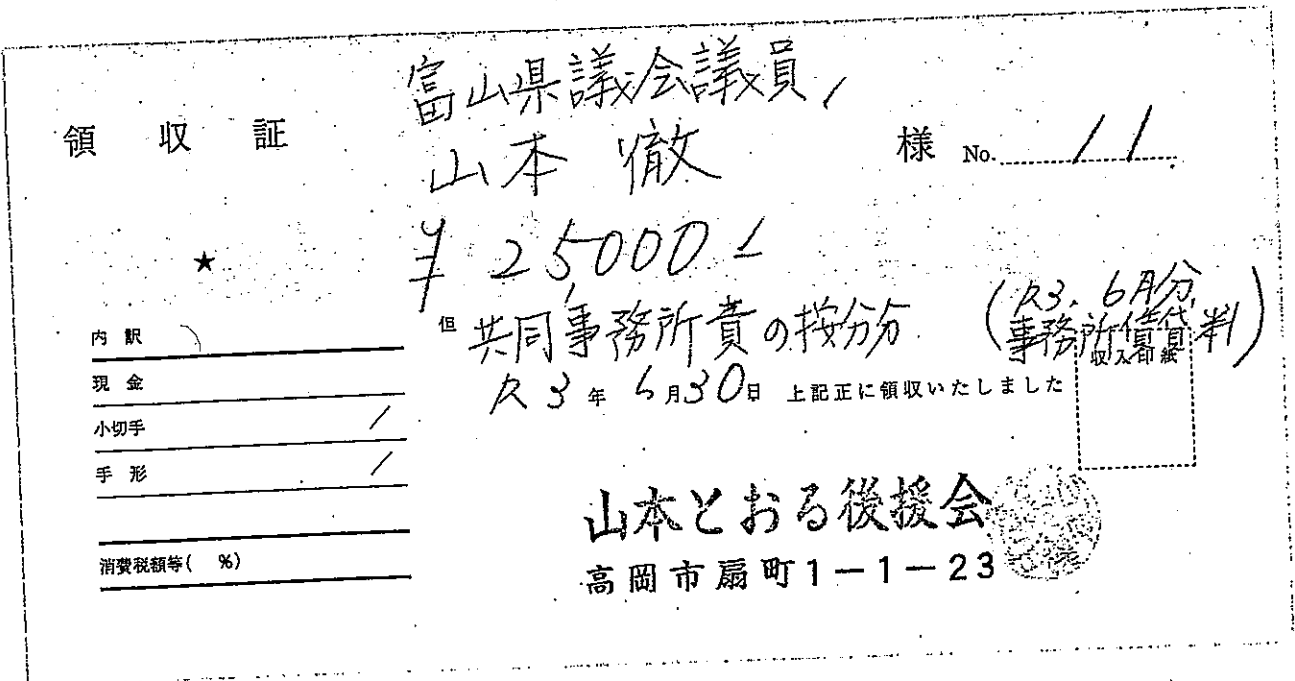 富山県議会議員
領収証 山本 徹 様 No. 11
★ ¥25,000
但 共同事務所費の按分分 (R3. 6月分
事務所借賃料)
収入印紙
R3年 6月30日 上記正に領収いたしました
内訳
現金
小切手 /
手形 /
消費税額等( %)
山本とおる後援会
高岡市扇町1-1-23